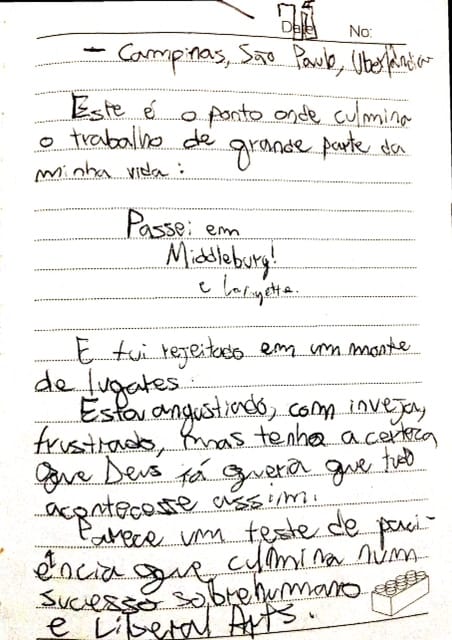 Date No:
- Campinas, São Paulo, Uberlândia
Este é o ponto onde culmina
o trabalho de grande parte da
minha vida:
Passei em
Middleburg!
e Lafayette.
E fui rejeitado em um monte
de lugares.
Estou angustiado, com inveja,
frustrado, mas tenho a certeza
que Deus já queria que tudo
acontecesse assim.
Parece um teste de paci-
ência que culmina num
sucesso sobrehumano
e Liberal Arts.